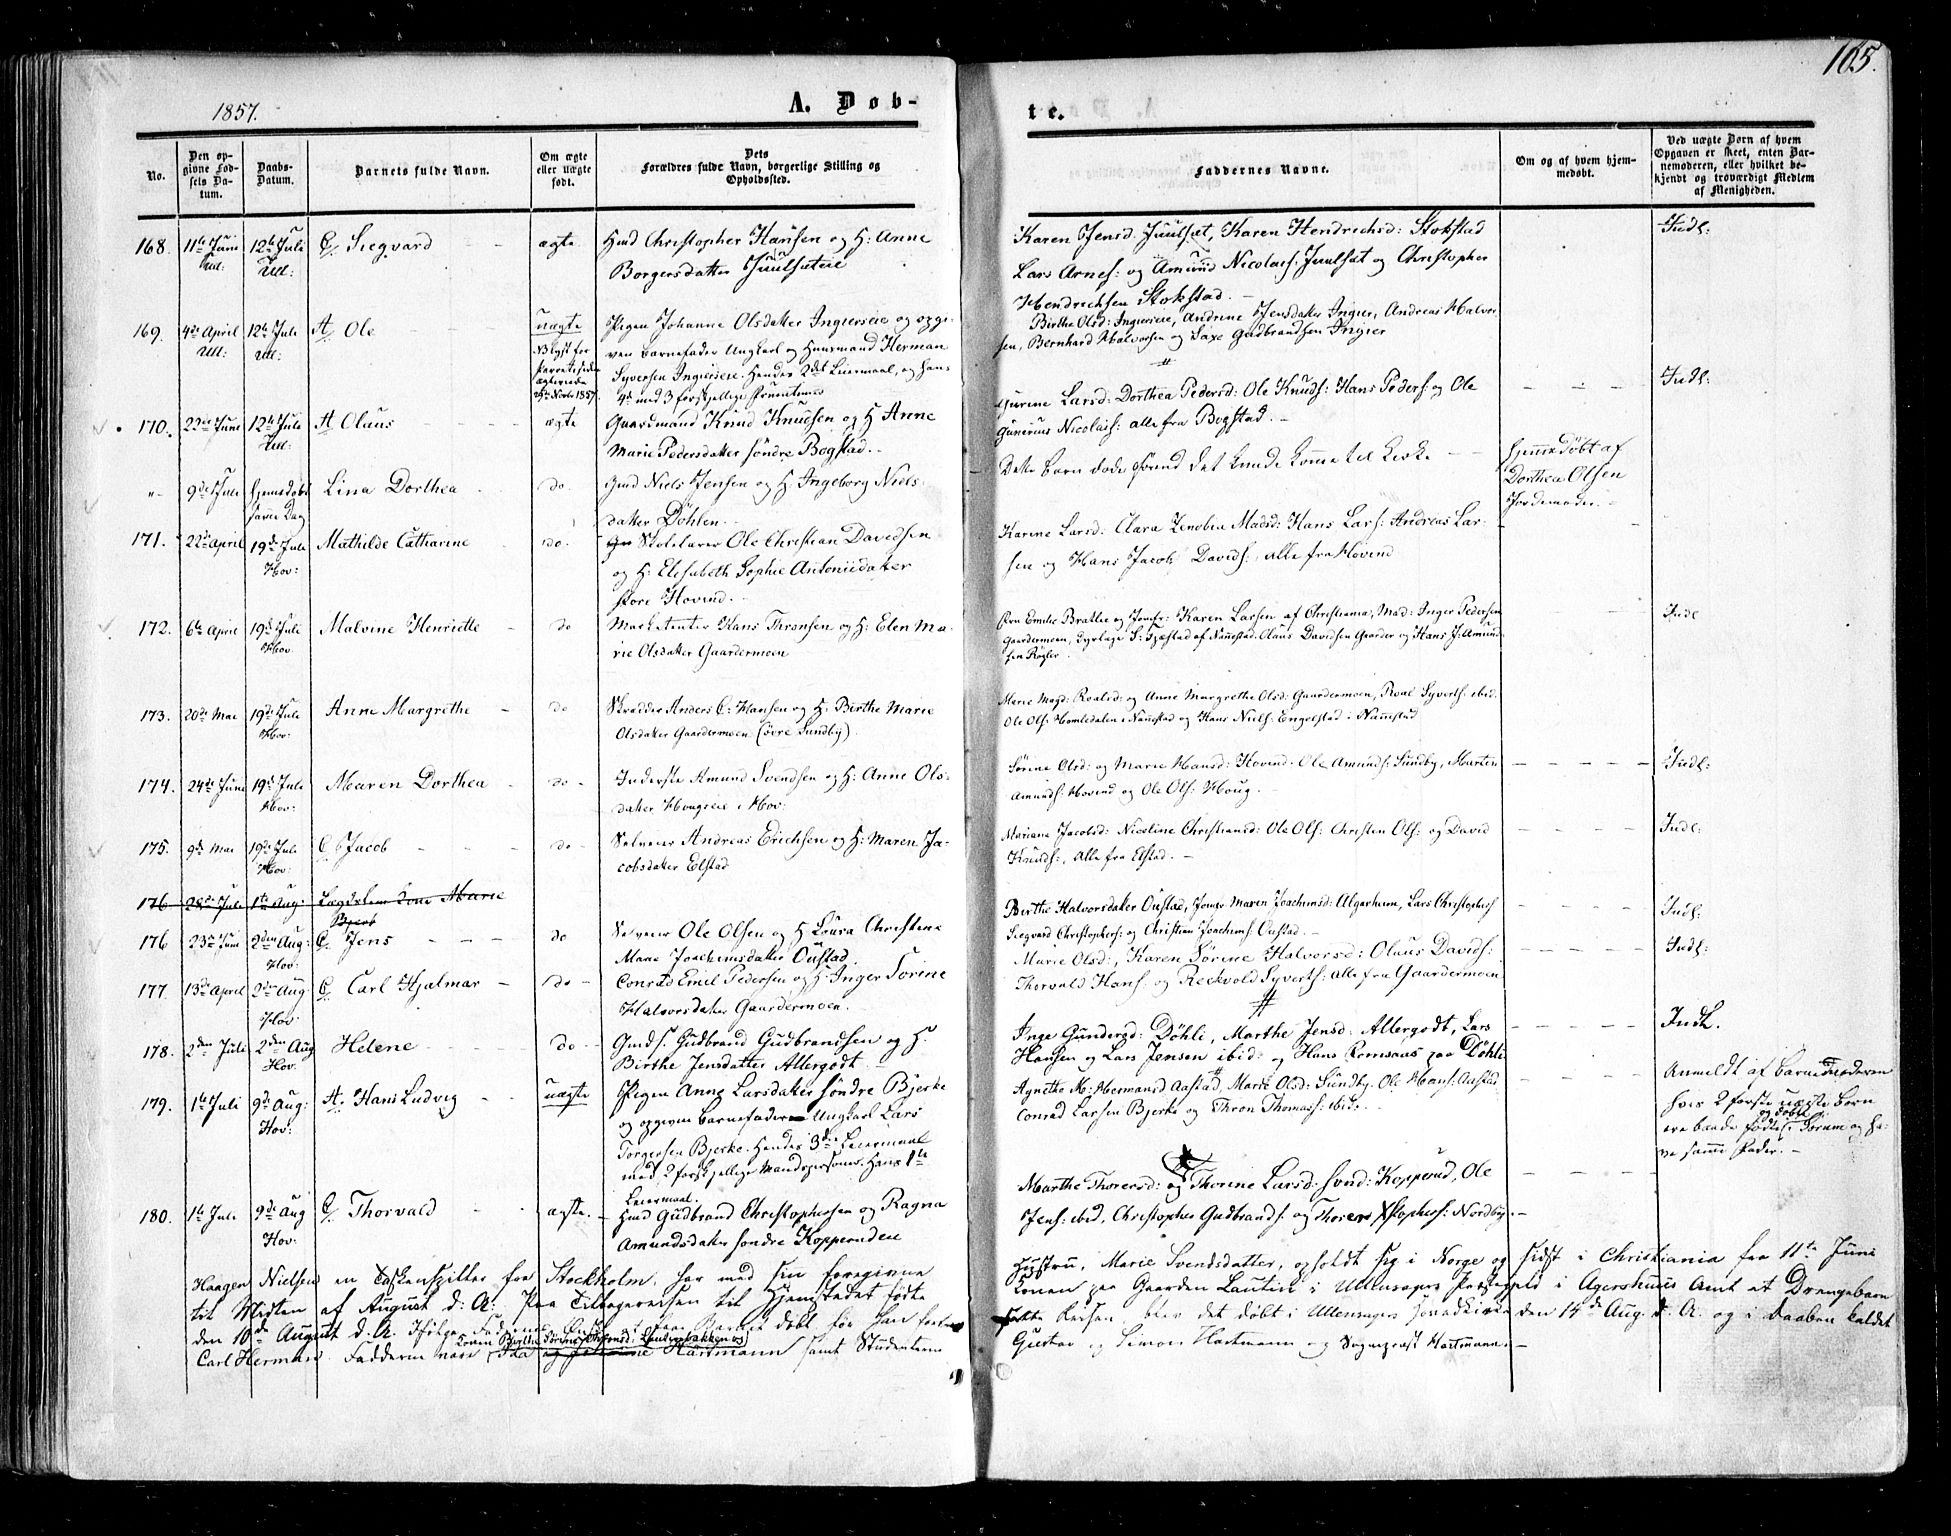 105.
1857.
A. Døb-
te.
No.
Den op-
givne Fød-
sels Da-
tum.
Daabs-
Datum.
Barnets fulde Navn.
Om ægte
eller uægte
født.
Dets
Forældres fulde Navn, borgerlige Stilling og
Opholdssted.
Faddernes Navne.
Om og af hvem hjem-
medøbt.
Ved uægte Børn af hvem
Opgaven er skeet, enten Bar-
nemoderen, eller hvilket be-
kjendt og troværdigt Medlem
af Menigheden.
168. 11te Juni 12te Juli Siegvard ægte Hmd Christopher Hansen og H: Anne
Ull: Ull: Borgersdatter Juulseteie
Karen Jensd. Juulsæt, Karen Hendrichsd: Stokstad
Lars Arnes: og Amund Nicolais: Juulsæt og Christopher
Hendrichsen Stokstad.
Indl:
169. 4de April 12te Juli A Ole uægte Pigen Johanne Olsdatter Ingierseie og opgi-
Ull: Ull: ven Barnefader Ungkarl og Huusmand Herman
Syversen Ingierseie. Hendes 2det Leiermaal, og hans
4de med 3 forskjellige Fruentimer
Birthe Olsd: Ingierseie, Andrine Jensdatter Ingier, Andreas Halvor-
sen, Bernhard Halvorsen og Saxe Gudbrandsen Ingier
170. 23de Juni 12te Juli A Olaus ægte Gaardmand Knud Knudsen og H Anne
Ull: Marie Pedersdatter søndre Bogstad.
Gurine Larsd: Dorthea Pedersd: Ole Knuds: Hans Peders: og Ole
Gunerius Nicolais: alle fra Bogstad.
Indl:
" 9de Juli Hjemmedøbt Lina Dorthea do Gmd Niels Jensen og H. Ingeborg Niels-
samme Dag datter Døhlen.
Dette Barn døde forend det kunde komme til Kirke
Hjemmedøbt af
Dorthea Olsen
Jordemoder.
171. 22de April 19de Juli Mathilde Catharine do. Skolelærer Ole Christian Davidsen
Hov: og H: Elisabeth Sophie Antoniidatter
store Hovind.
Karine Larsd: Clara Zenobia Madsd: Hans Lars: Andreas Lar-
sen og Hans Jacob Davids:, alle fra Hovind
172. 6te April 19de Juli Malvine Henriette do Marketenter Hans Thronsen og H: Elen Ma-
Hov. rie Olsdatter Gaardermoen
Emilie Bratlie og Jomfr: Karen Larsen af Christiania, Mad: Inger Pedersen
Gaardermoen, Dyrlæge S: Tjæstad af Nannestad. Olaus Davidsen Gaarder og Hans J: Amund-
sen Røgler
Indl
173. 20de Mai 19de Juli Anne Margrethe do Skrædder Anders C: Hansen og H. Birthe Marie
Hov: Olsdatter Gaardermoen (øvre Sundby)
Marie Magd: Roalsd: og Anne Margrethe Olsd: Gaardermoen, Roal Syverts: ibid.
Ole Ols: Homledalen i Nannestad og Hans Niels: Engelstad i Nannestad
174. 24de Juni 19de Juli Maren Dorthea do Inderste Amund Svendsen og H: Anne Ols-
Hov: datter Hougseie i Hov:
Sørine Olsd: og Marie Hansd: Hovind. Ole Amunds: Sundby, Morten
Amunds: Hovind og Ole Ols: Houg.
Indl:
175. 9de Mai 19de Juli C Jacob do Selveier Andreas Erichsen og H: Maren Ja-
Hov: cobsdatter Elstad
Mariane Jacobsd: Nicoline Christiansd: Ole Ols: Christen Ols: og David
Knuds:, alle fra Elstad.
Indl:
176 28de Juli 1te Aug: Lægdslem Marie
176 23de Juni 2den Aug: C. Jens do Selveier Ole Olsen og H Laura Christine
Hov: Marie Joachimsdatter Oustad.
Birthe Halvorsdatter Oustad, Jomfr Maren Joachimsd: Algarheim, Lars Christophers
Siegvard Christophers: og Christian Joachims: Oustad.
Indl:
177 13de April 2den Aug: C. Carl Hjalmar do Conrad Emil Pedersen og H: Inger Sørine
Hov Halvorsdatter Gaardermoen.
Marie Olsd:, Karen Sørine Halvorsd: Olaus Davids:
Thorvald Hans: og Reckvold Syverts: alle fra Gaardermoen
Indl:
178. 2den Juli 2den Aug Helene do Gmds. Gudbrand Gudbrandsen og H.
Hov. Birthe Jensdatter Allergodt
Inge Gundersd: Døhli, Marthe Jensd: Allergodt, Lars
Hansen og Lars Jensen ibid: og Hans Romsaas paa Døhli
Indl.
179. 1te Juli 9de Aug: A. Hans Ludvig uægte Pigen Anne Larsdatter søndre Bjerke
Hov: og opgiven Barnefader Ungkarl Lars
Torgersen Bjerke. Hendes 3die Leiermaal
med 2 forskjellige Mandspersoner. Hans 1te
Leiermaal.
Agnethe M: Hermansd Aastad, Marie Olsd: Sundby. Ole Hans: Aastad
Conrad Larsen Bjerke og Thron Thomass: ibid:
Anmeldt af Barnemoderen
hvis 2 første uægte Børn
ere baade fødte og døbte i Sørum og ha-
ve samme Fader.
180. 1te Juli 9de Aug C. Thorvald ægte. Hmd Gudbrand Christophersen og Ragna
Hov: Amundsdatter søndre Kopperuden
Marthe Thoresd: og Thorine Larsd: sønd: Kopperud, Ole
Jens: ibid, Christopher Gudbrands: og Thorer Xstophers: Nordby.
Haagen Nielsen en Taskenspiller fra Stockholm, har med sin foregivne Hustru, Marie Svendsdatter, opholdt sig i Norge og sidst i Christiania fra 11te Juni
til Midten af August d: A: Paa Tilbagereisen til Hjemstedet fødte Konen paa Gaarden Lautin i Ullensagers Præstegjeld i Agershuus Amt et Drengebarn
den 10de August d. A. Ifølge Faderens blev det døbt i Ullensagers Hovedkirke den 14de Aug. d. A: og i Daaben kaldet
Carl Herman. Fadderne vare Hartmann samt Studenterne Gustav og Simon Hartmann og Sogneprest Hartmann.